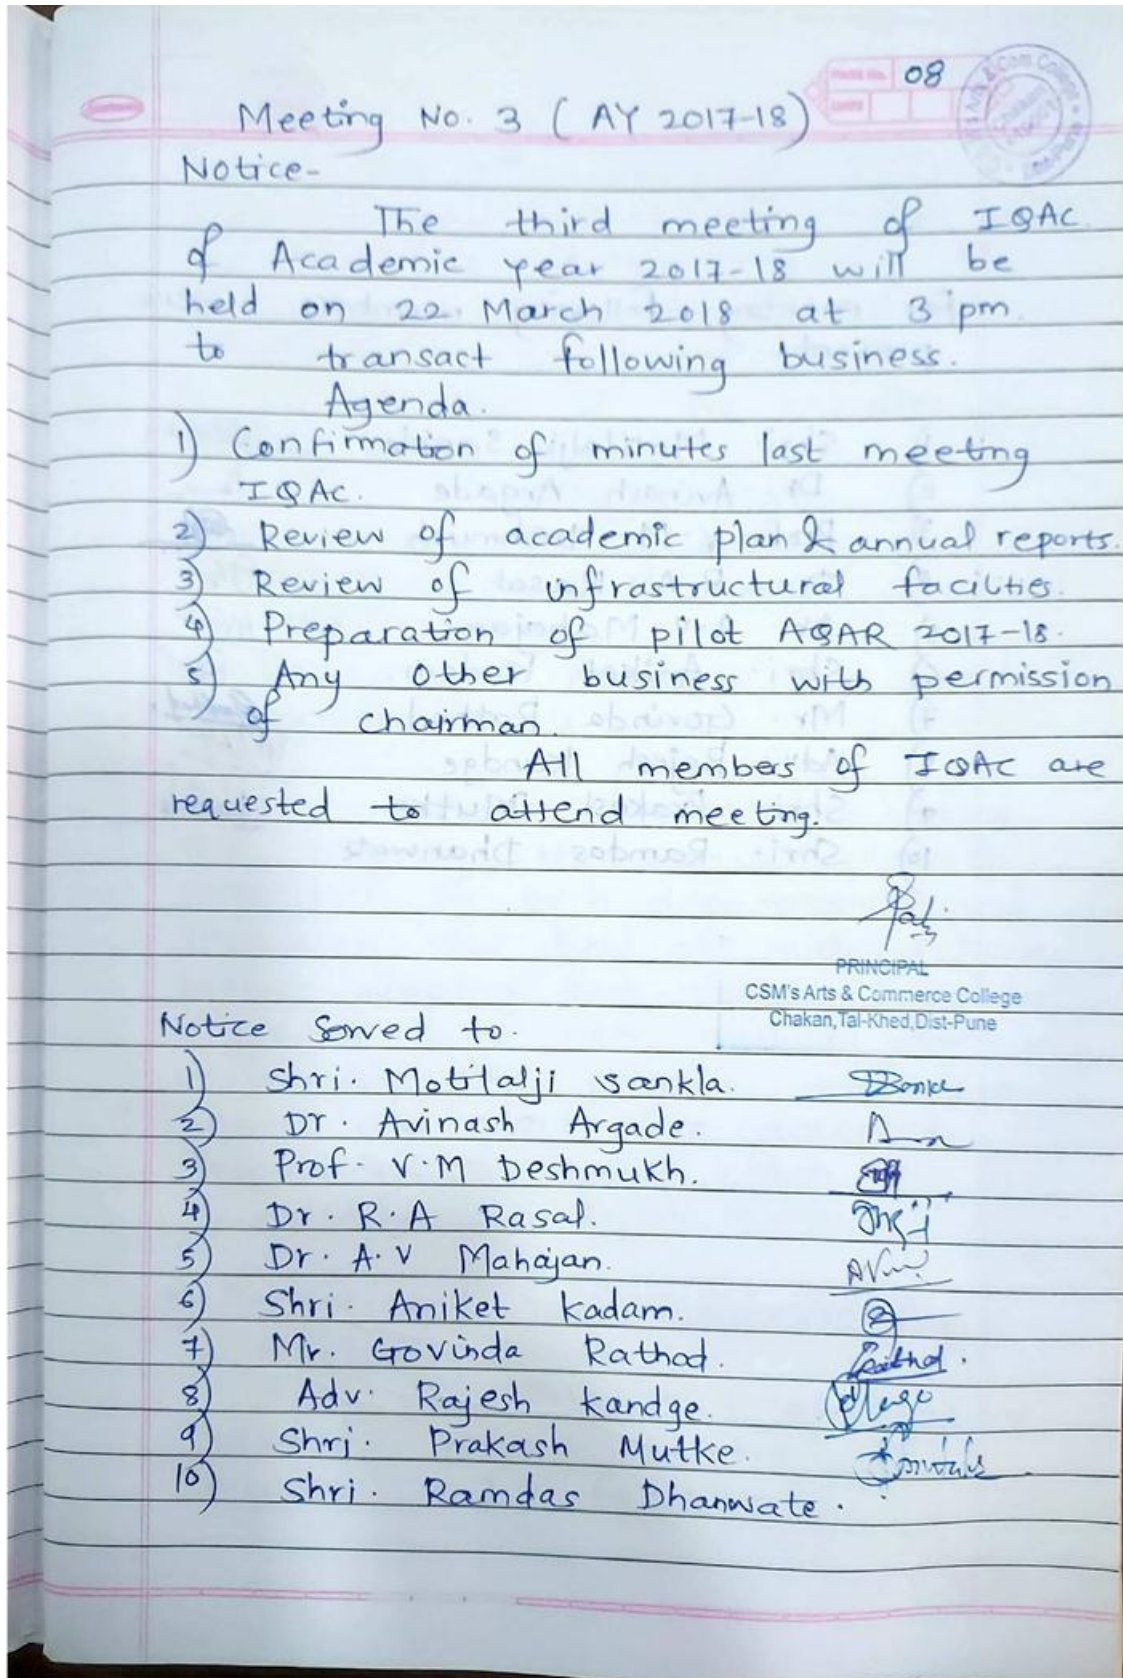 PAGE No. 08
DATE
Meeting No. 3 (AY 2017-18)
Notice-
The third meeting of IQAC
of Academic year 2017-18 will be
held on 22 March 2018 at 3 pm.
to transact following business.
Agenda.
1) Confirmation of minutes last meeting
IQAC.
2) Review of academic plan & annual reports.
3) Review of infrastructural facilities.
4) Preparation of pilot AQAR 2017-18.
5) Any other business with permission
of chairman.
All members of IQAC are
requested to attend meeting.
PRINCIPAL
CSM's Arts & Commerce College
Chakan, Tal-Khed, Dist-Pune
Notice Served to.
1) Shri. Motilalji Sankla.
2) Dr. Avinash Argade.
3) Prof. V.M Deshmukh.
4) Dr. R.A Rasal.
5) Dr. A.V Mahajan.
6) Shri. Aniket Kadam.
7) Mr. Govinda Rathod. Rathod.
8) Adv. Rajesh Kandge.
9) Shri. Prakash Mutke.
10) Shri. Ramdas Dhanwate.